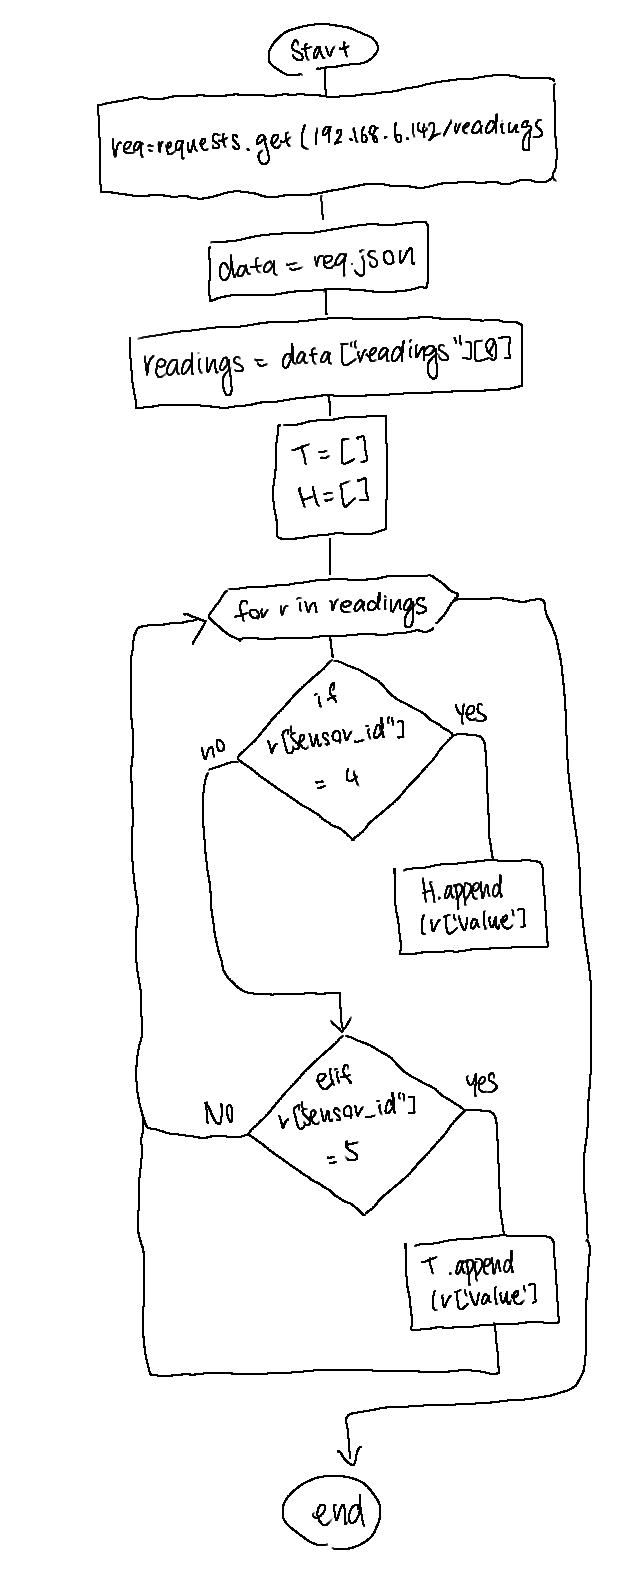 Start
req=requests.get(192.168.6.142/readings
data = req.json
readings = data ["readings"][0]
T = []
H = []
for r in readings
if
r["sensor_id"]
= 4
yes
no
H.append
(r['value']
elif
r["sensor_id"]
= 5
yes
NO
T.append
(r['value']
end